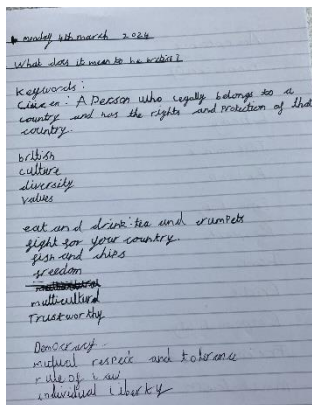 monday 4th march 2024
What does it mean to be british?
Keywords:
Citizen: A Person who legally belongs to a
country and has the rights and Protection of that
country.
british
culture
diversity
values
eat and drink: tea and crumpets
fight for your country.
fish and chips
freedom
multicultural
Trustworthy
Democracy.
mutual respect and tolerance
rule of law
individual liberty